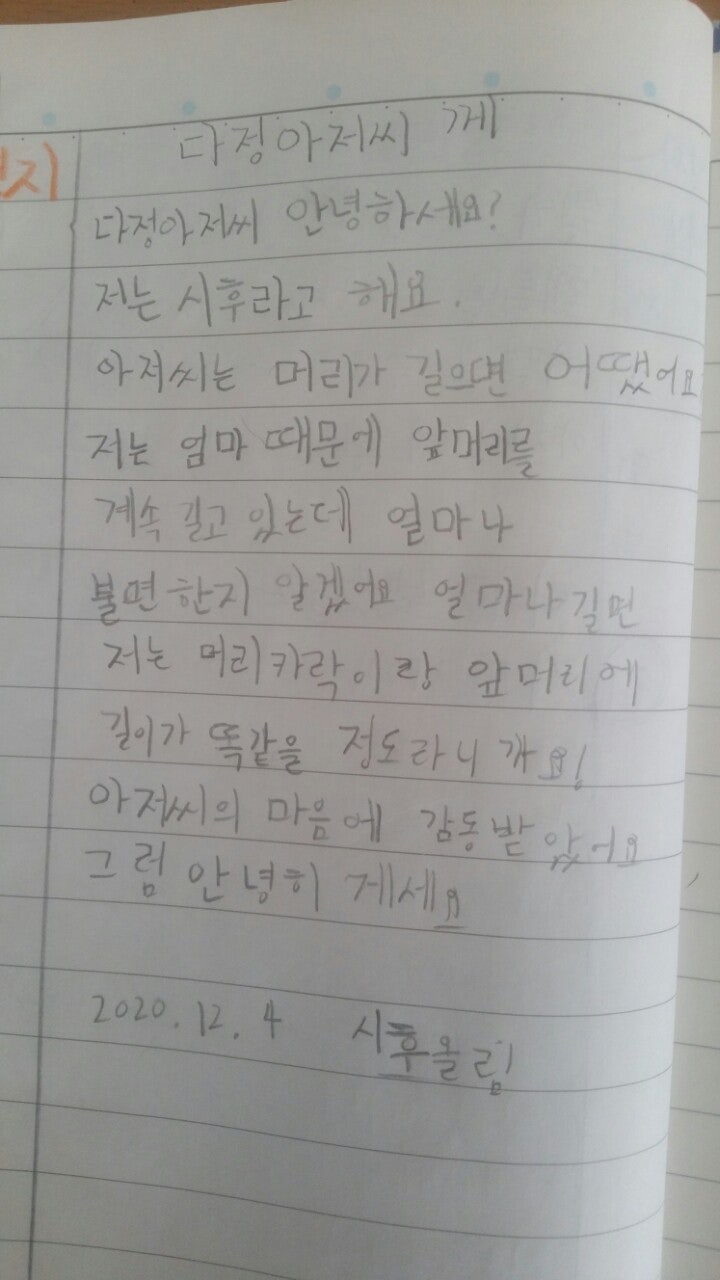 다정아저씨 께
다정아저씨 안녕하세요?
저는 시후라고 해요.
아저씨는 머리가 길으면 어땠어요
저는 엄마 때문에 앞머리를
계속 길고 있는데 얼마나
불면한지 알겠어요 얼마나길면
저는 머리카락이랑 앞머리에
길이가 똑같을 정도라니까요!
아저씨의 마음에 감동받았어요
그럼 안녕히 계세요
2020.12.4 시후올림